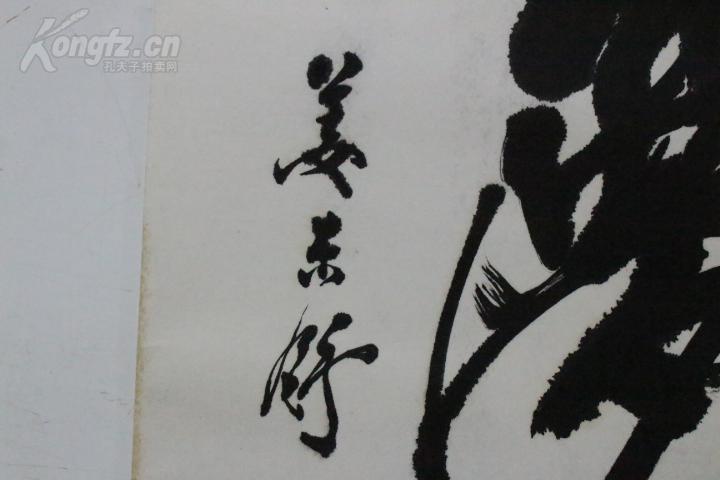 Kongfz.cn
孔夫子拍卖网
姜东舒